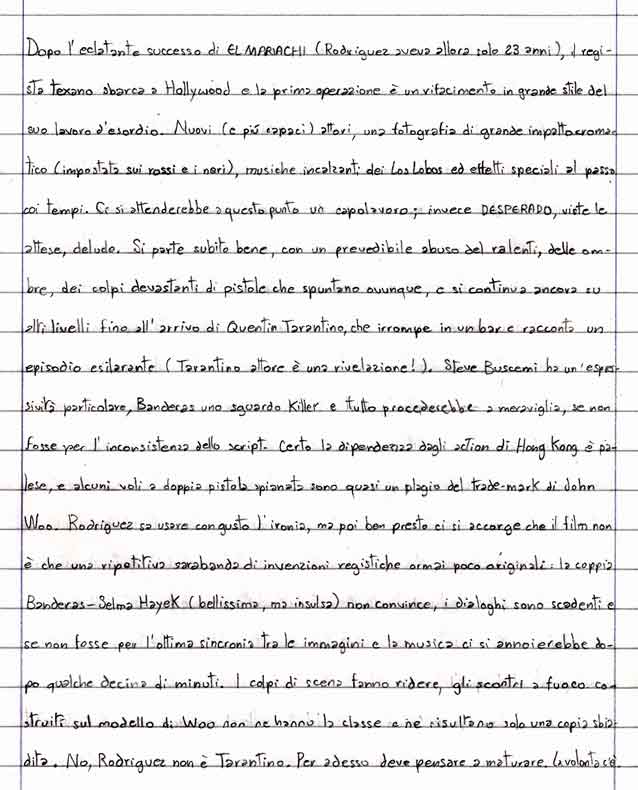 Dopo l'eclatante successo di EL MARIACHI (Rodriguez aveva allora solo 23 anni), il regi-
sta texano sbarca a Hollywood e la prima operazione è un rifacimento in grande stile del
suo lavoro d'esordio. Nuovi (e più capaci) attori, una fotografia di grande impatto croma-
tico (impostata sui rossi e i neri), musiche incalzanti dei Los Lobos ed effetti speciali al passo
coi tempi. Ci si attenderebbe a questo punto un capolavoro; invece DESPERADO, viste le
attese, delude. Si parte subito bene, con un prevedibile abuso del ralenti, delle om-
bre, dei colpi devastanti di pistole che spuntano ovunque, e si continua ancora su
alti livelli fino all'arrivo di Quentin Tarantino, che irrompe in un bar e racconta un
episodio esilarante (Tarantino attore è una rivelazione!). Steve Buscemi ha un'espres-
sività particolare, Banderas uno sguardo killer e tutto procederebbe a meraviglia, se non
fosse per l'inconsistenza dello script. Certo la dipendenza dagli action di Hong Kong è pa-
lese, e alcuni voli a doppia pistola spianata sono quasi un plagio del trade-mark di John
Woo. Rodriguez sa usare con gusto l'ironia, ma poi ben presto ci si accorge che il film non
è che una ripetitiva sarabanda di invenzioni registiche ormai poco originali: la coppia
Banderas-Selma Hayek (bellissima, ma insulsa) non convince, i dialoghi sono scadenti e
se non fosse per l'ottima sincronia tra le immagini e la musica ci si annoierebbe do-
po qualche decina di minuti. I colpi di scena fanno ridere, gli scontri a fuoco co-
struiti sul modello di Woo non ne hanno la classe e ne risultano solo una copia sbia-
dita. No, Rodriguez non è Tarantino. Per adesso deve pensare a maturare. La volontà c'è.